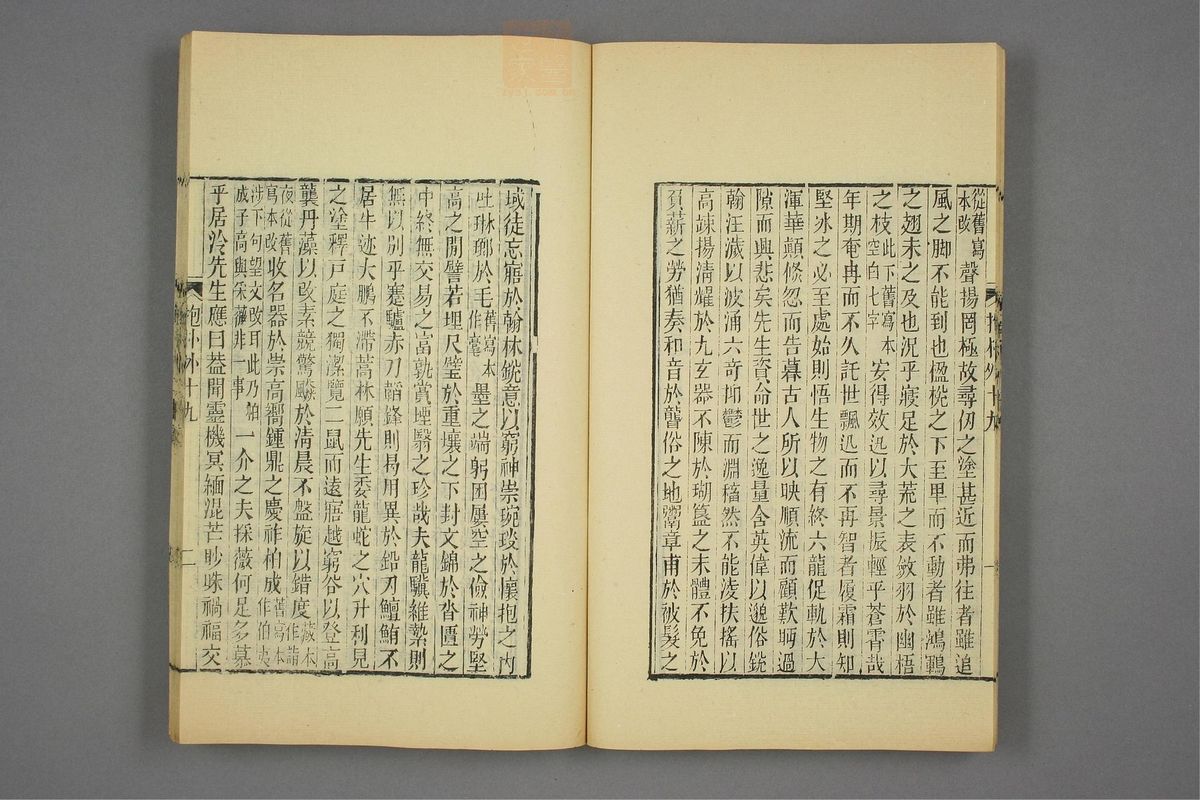 從舊寫本改聲揚罔極故尋仞之塗甚近而弗往者雖追
風之脚不能到也楹棁之下至卑而不動者雖鴻鵾
之翅未之及也況乎寢足於大荒之表斂羽於幽梧
之枝此下舊寫本空白七字安得效迅以尋景振輕乎蒼霄哉
年期奄冉而不久託世飄迅而不再智者履霜則知
堅冰之必至處始則悟生物之有終六龍促軌於大
渾華顛倏忽而告暮古人所以映順流而顧歎眄過
隙而興悲矣先生資命世之逸量含英偉以邈俗銳
翰汪濊以波涌六奇抑鬱而淵稸然不能淩扶搖以
高竦揚清耀於九玄器不陳於瑚簋之末體不免於
負薪之勞猶奏和音於聾俗之地鬻章甫於被髮之
域徒忘寤於翰林銳意以窮神崇琬琰於懷抱之內
吐琳瑯於毛舊寫本作毫墨之端躬困屢空之儉神勞堅
高之閒譬若埋尺璧於重壤之下封文錦於沓匱之
中終無交易之富孰賞堙翳之珍哉夫龍驥維縶則
無以別乎蹇驢赤刀韜鋒則曷用異於鉛刃鱣鮪不
居牛迹大鵬不滯蒿林願先生委龍蛇之穴升利見
之塗釋戶庭之獨潔覽二鼠而遠寤越窮谷以登高
襲丹藻以改素競驚飈於清晨不盤旋以錯度藏本作請
夜從舊寫本改收名器於崇高嚮鍾鼎之慶祚柏成舊寫本作伯夷
涉下句望文改耳此乃伯成子高與采薇非一事一介之夫採薇何足多慕
乎居泠先生應曰蓋聞靈機冥緬混芒眇昧禍福交
抱朴外十九
二